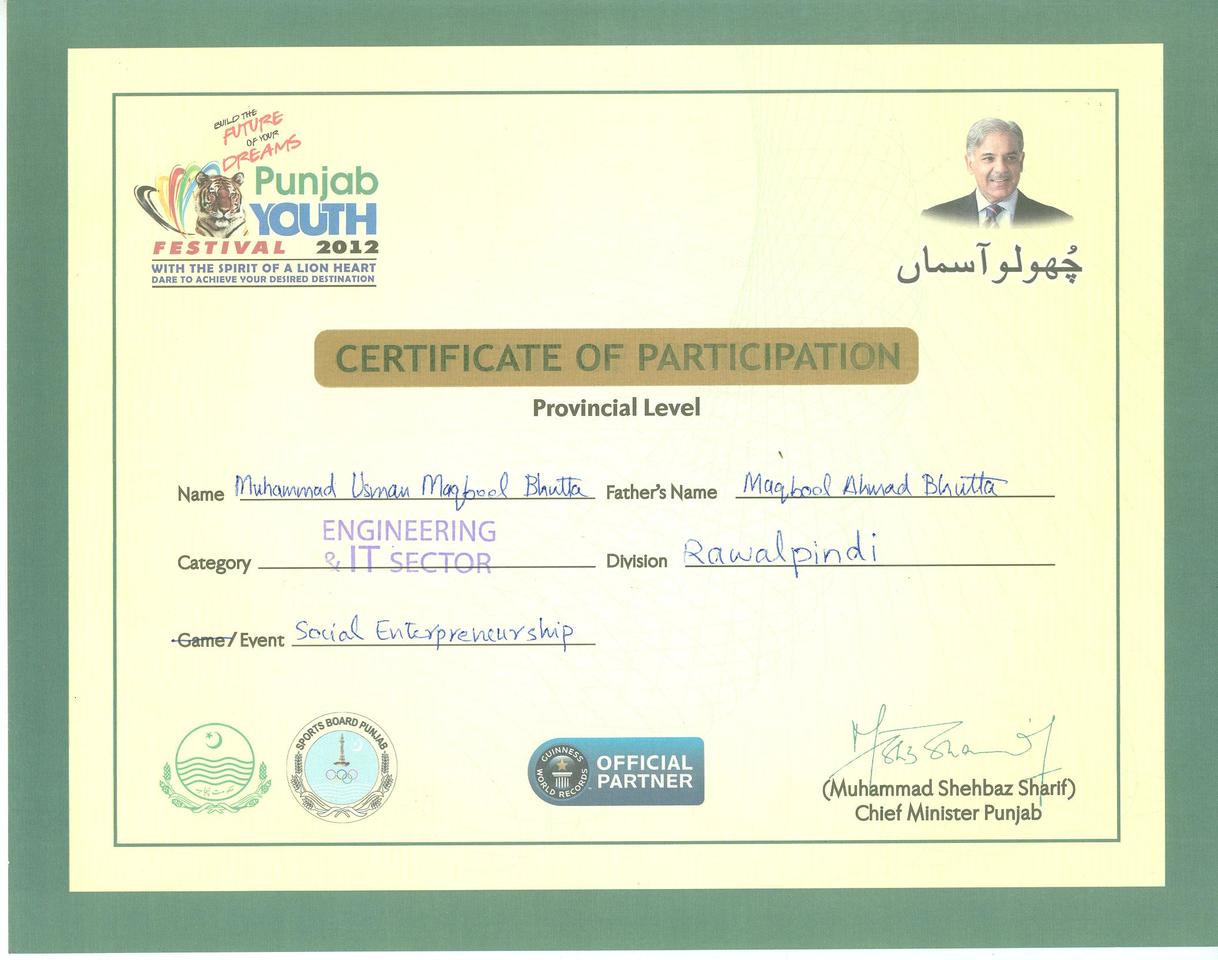 BUILD THE
FUTURE
OF YOUR
DREAMS
Punjab
YOUTH
FESTIVAL 2012
WITH THE SPIRIT OF A LION HEART
DARE TO ACHIEVE YOUR DESIRED DESTINATION
چُھولو آسماں
CERTIFICATE OF PARTICIPATION
Provincial Level
Name Muhammad Usman Maqbool Bhutta Father's Name Maqbool Ahmad Bhutta
ENGINEERING
Category & IT SECTOR Division Rawalpindi
Game/ Event Social Enterpreneurship
SPORTS BOARD PUNJAB
GUINNESS
WORLD RECORDS
OFFICIAL
PARTNER
(Muhammad Shehbaz Sharif)
Chief Minister Punjab